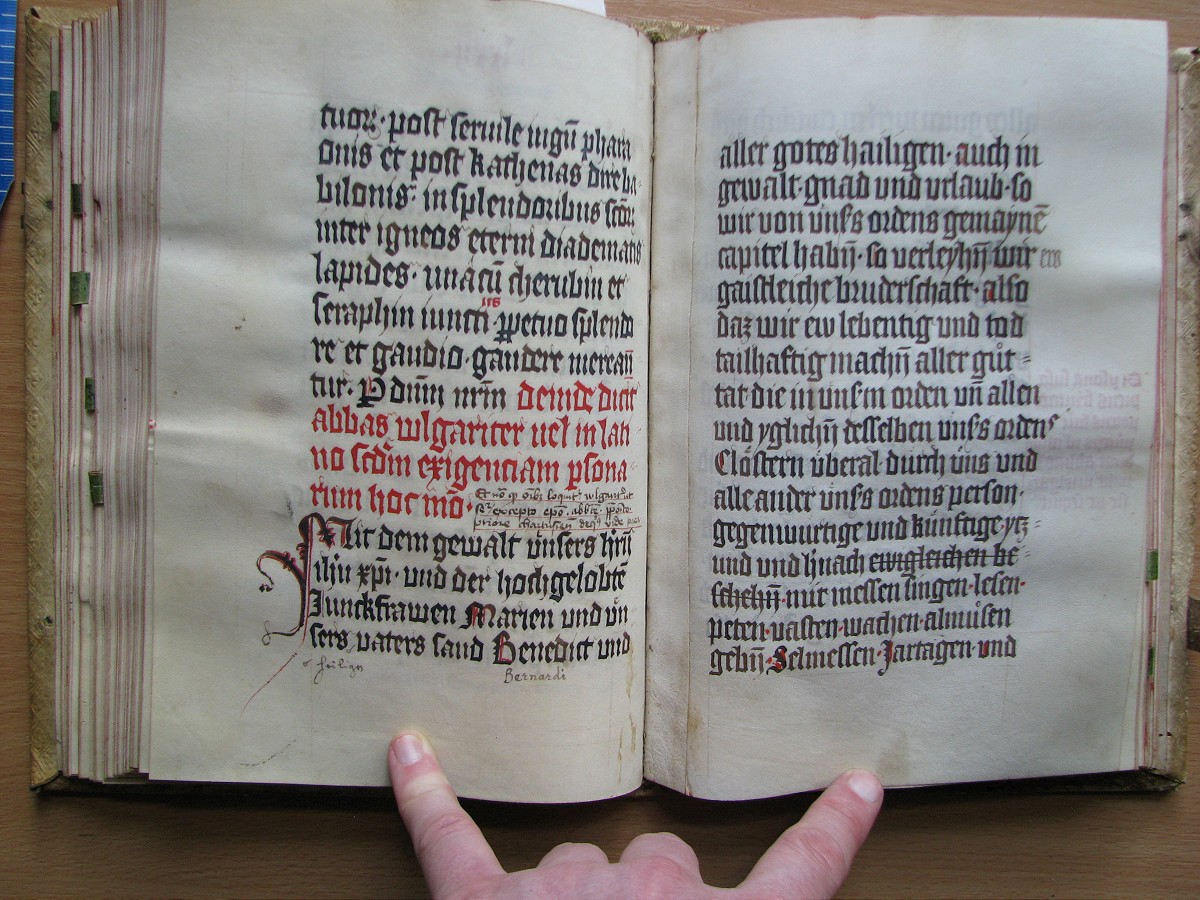 tuor· post seruile iugū phara
onis et post kathenas dire ba-
bilonis· in splendoribus scōr
inter igneos eterni diadematis
lapides· unacū cherubin et
seraphin iuncti ꝑpetuo splendo
re et gaudio· gaudere merean̄
tur· P dn̄m nr̄m deinde dicit
abbas wlgariter uel in lati
no scd̄m exigenciam ꝑsona-
rum hoc mō·
Mit dem gewalt ůnsers hr̄n
ihū xp̄i· und der hochgelobtē
Junckfrawen Marien und ůn
sers vaters sand Benedict und
heilign
Bernardi
aller gotes hailigen· auch in
gewalt· gnad vnd vrlaub· so
wir von vnsers ordens gemaynē
capitel habn̄· so verleyhn̄ wir ew
gaistleiche bruderschaft· also
daz wir ew lebentig vnd tod
tailhaftig machn̄ aller gůt=
tat die in vnsm orden vn̄ allen
vnd yglichn̄ desselben vnsers ordens
Clöstern überal· durch üns vnd
alle ander vnsers ordens person·
gegenwurtige vnd künftige· ytz=
und vnd hinach ewigleichen be=
schehn̄· mit messen singen· lesen·
peten· vasten· wachen· almůsen
gebn̄· Selmessen· Jartagen· vnd